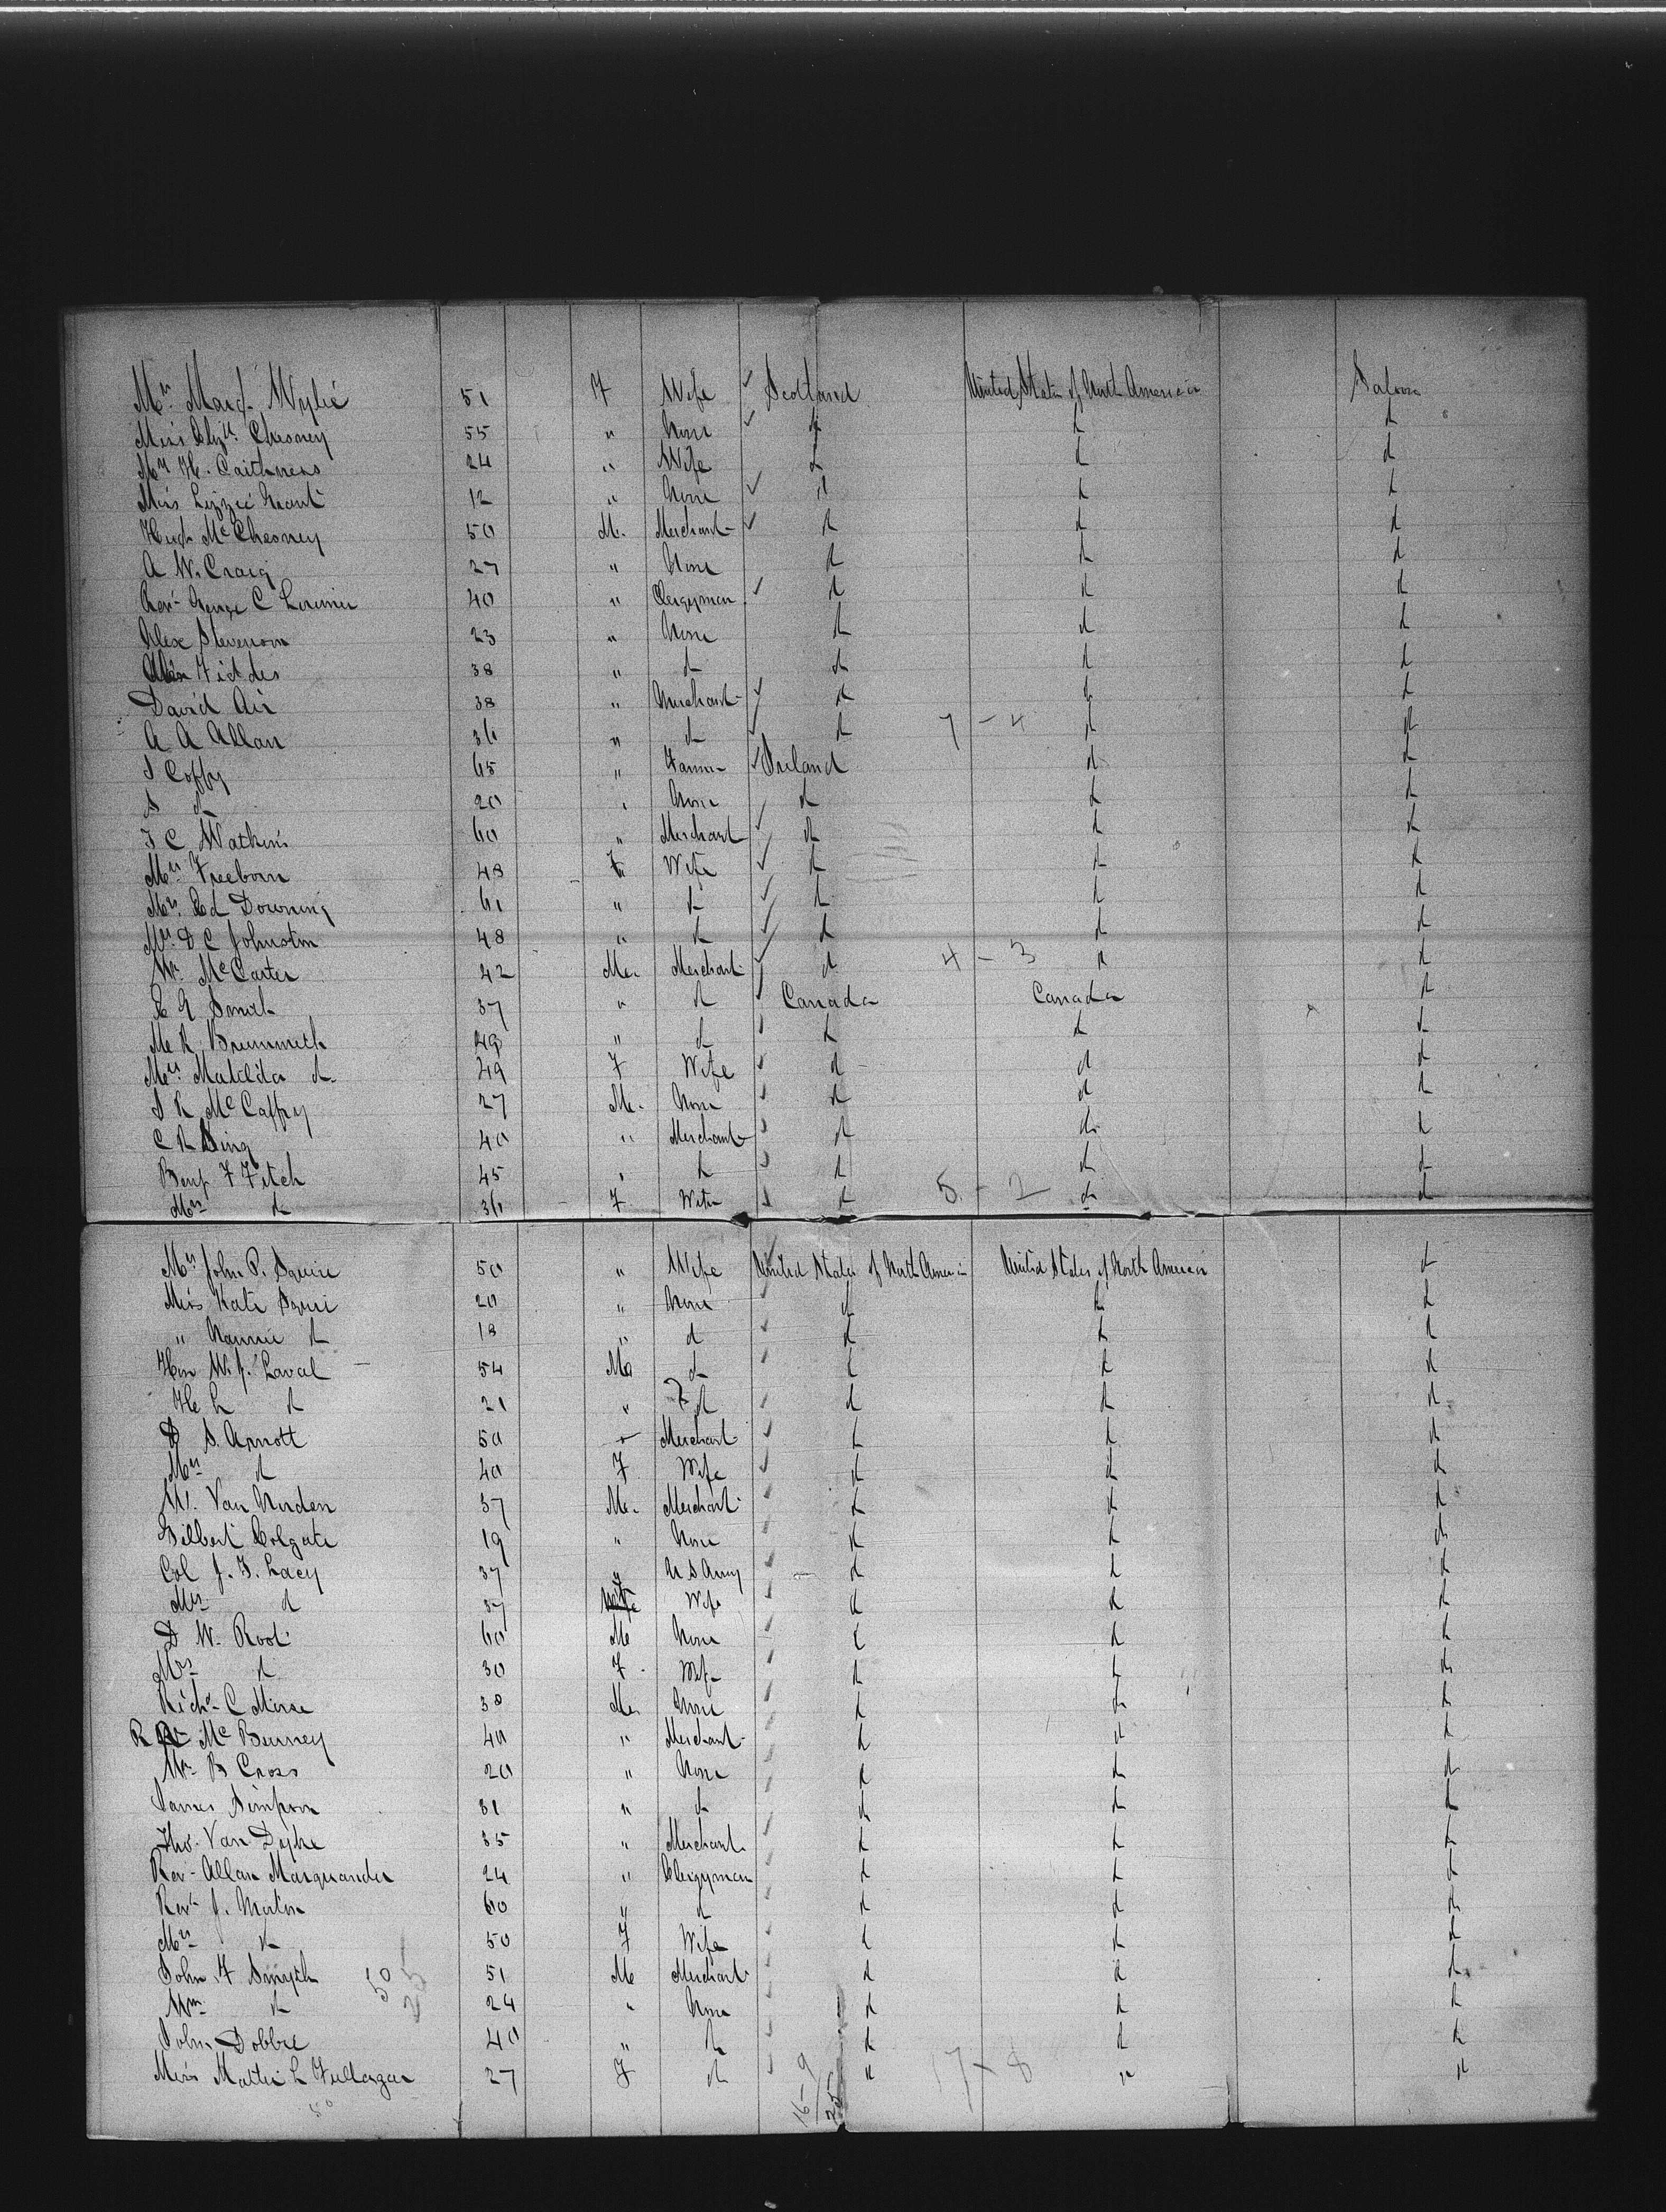 Mrs Margt Wylie 51 F Wife Scotland United States of North America Saloon
Miss Elizth Chesney 55 " None do do do
Mrs H. Caithness 24 " Wife do do do
Miss Lizzie Grant 12 " None do do do
Hugh McChesney 50 M. Merchant do do do
A W. Craig 27 " None do do do
Revd George C Lorimer 40 " Clergyman do do do
Alex Stevenson 23 " None do do do
Fiddes 38 " do do do do
David Air 38 " Merchant do do do
A A Allan 36 " do do 7 - 4 do do
J Coffy 65 " Farmer Ireland do do
S do 20 " None do do do
J C Watkins 60 " Merchant do do do
Mrs Freeborn 48 F Wife do do do
Mrs Ed Downing 61 " do do do do
Mrs D C Johnston 48 " do do do do
Wm McCarter 42 M. Merchant do 4 - 3 do do
E A Smith 37 " do Canada Canada do
M R Brummeth 49 " do do do do
Mrs Matilda do 49 F Wife do do do
J R McCaffry 27 M. None do do do
C R Sing 40 " Merchant do do do
Benj F Fitch 45 " do do do do
Mrs do 36 F Wife do 5 - 2 do do
Mrs John P. Squire 50 " Wife United States of North America United States of North America do
Miss Kate Squire 20 " None do do do
" Nannie do 18 " do do do do
Hon W. J. Laval 54 M do do do do
H L do 21 " do do do do
D S. Arnott 50 " Merchant do do do
Mrs do 40 F Wife do do do
W. Van Nurden 37 M. Merchant do do do
Gilbert Colgate 19 " None do do do
Col J. T. Lacy 37 " U S Army do do do
Mrs do 37 Wife do do do
D W. Root 60 M None do do do
Mrs do 30 F. Wife do do do
Richd C Morse 38 M None do do do
R McBurney 40 " Merchant do do do
Wm B Cross 20 " None do do do
James Simpson 31 " do do do do
Tho. Van Dyke 35 " Merchant do do do
Rev Allan Marquander 24 " Clergyman do do do
Rev J. Martin 60 " do do do do
Mrs do 50 F Wife do do do
John F Smyth 50 25 51 M Merchant do do do
Wm do 24 " None do do do
John Dobbie 40 " do do do do
Miss Mattie L Fullagar 27 F do " 17 - 8 " "
50 16 - 9 25